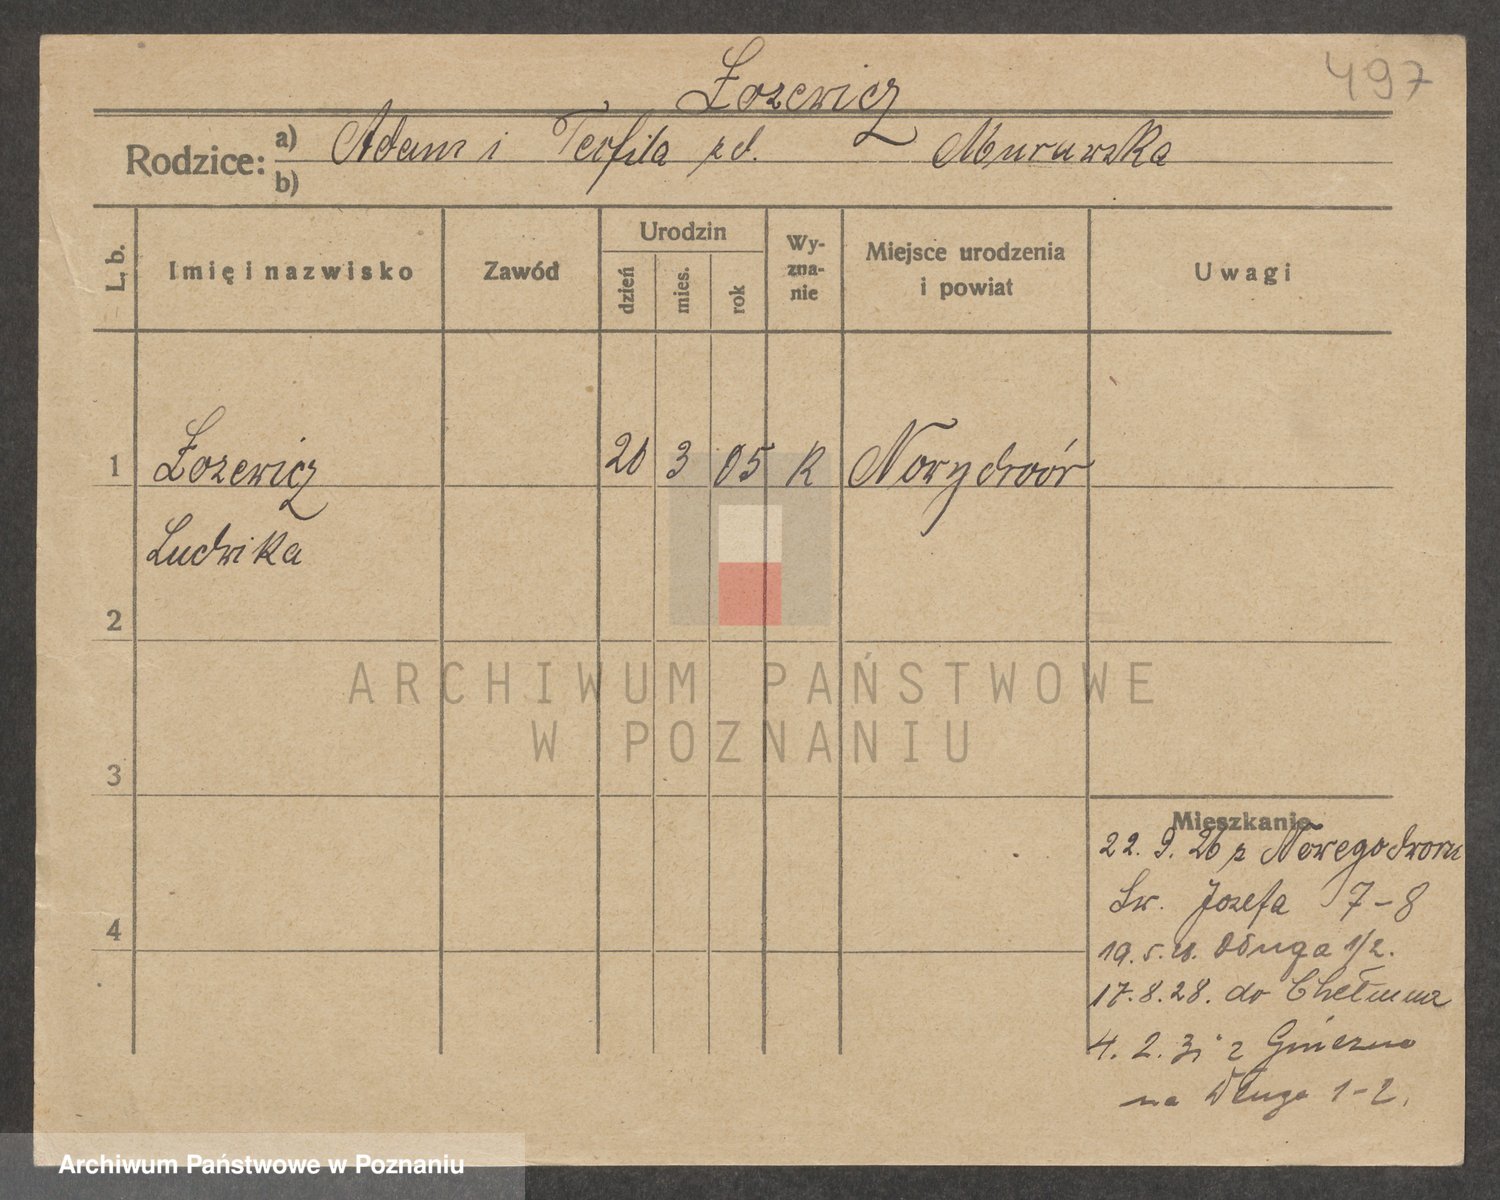 497
Łozewicz
Rodzice: a) Adam i Teofila zd. Murawska
b)
L. b. Imię i nazwisko Zawód Urodzin dzień mies. rok Wy-zna-nie Miejsce urodzenia i powiat Uwagi
1 Łozewicz 20 3 05 K Nowydwór
Ludwika
2
ARCHIWUM PAŃSTWOWE
W POZNANIU
3
Mieszkanie
22. 9. 26 z Nowegodworu
Św. Józefa 7-8
4
19. 5. 28. Długa 1/2.
17. 8. 28. do Chełmna
4. 2. 31 z Gniezna
na Długa 1-2.
Archiwum Państwowe w Poznaniu